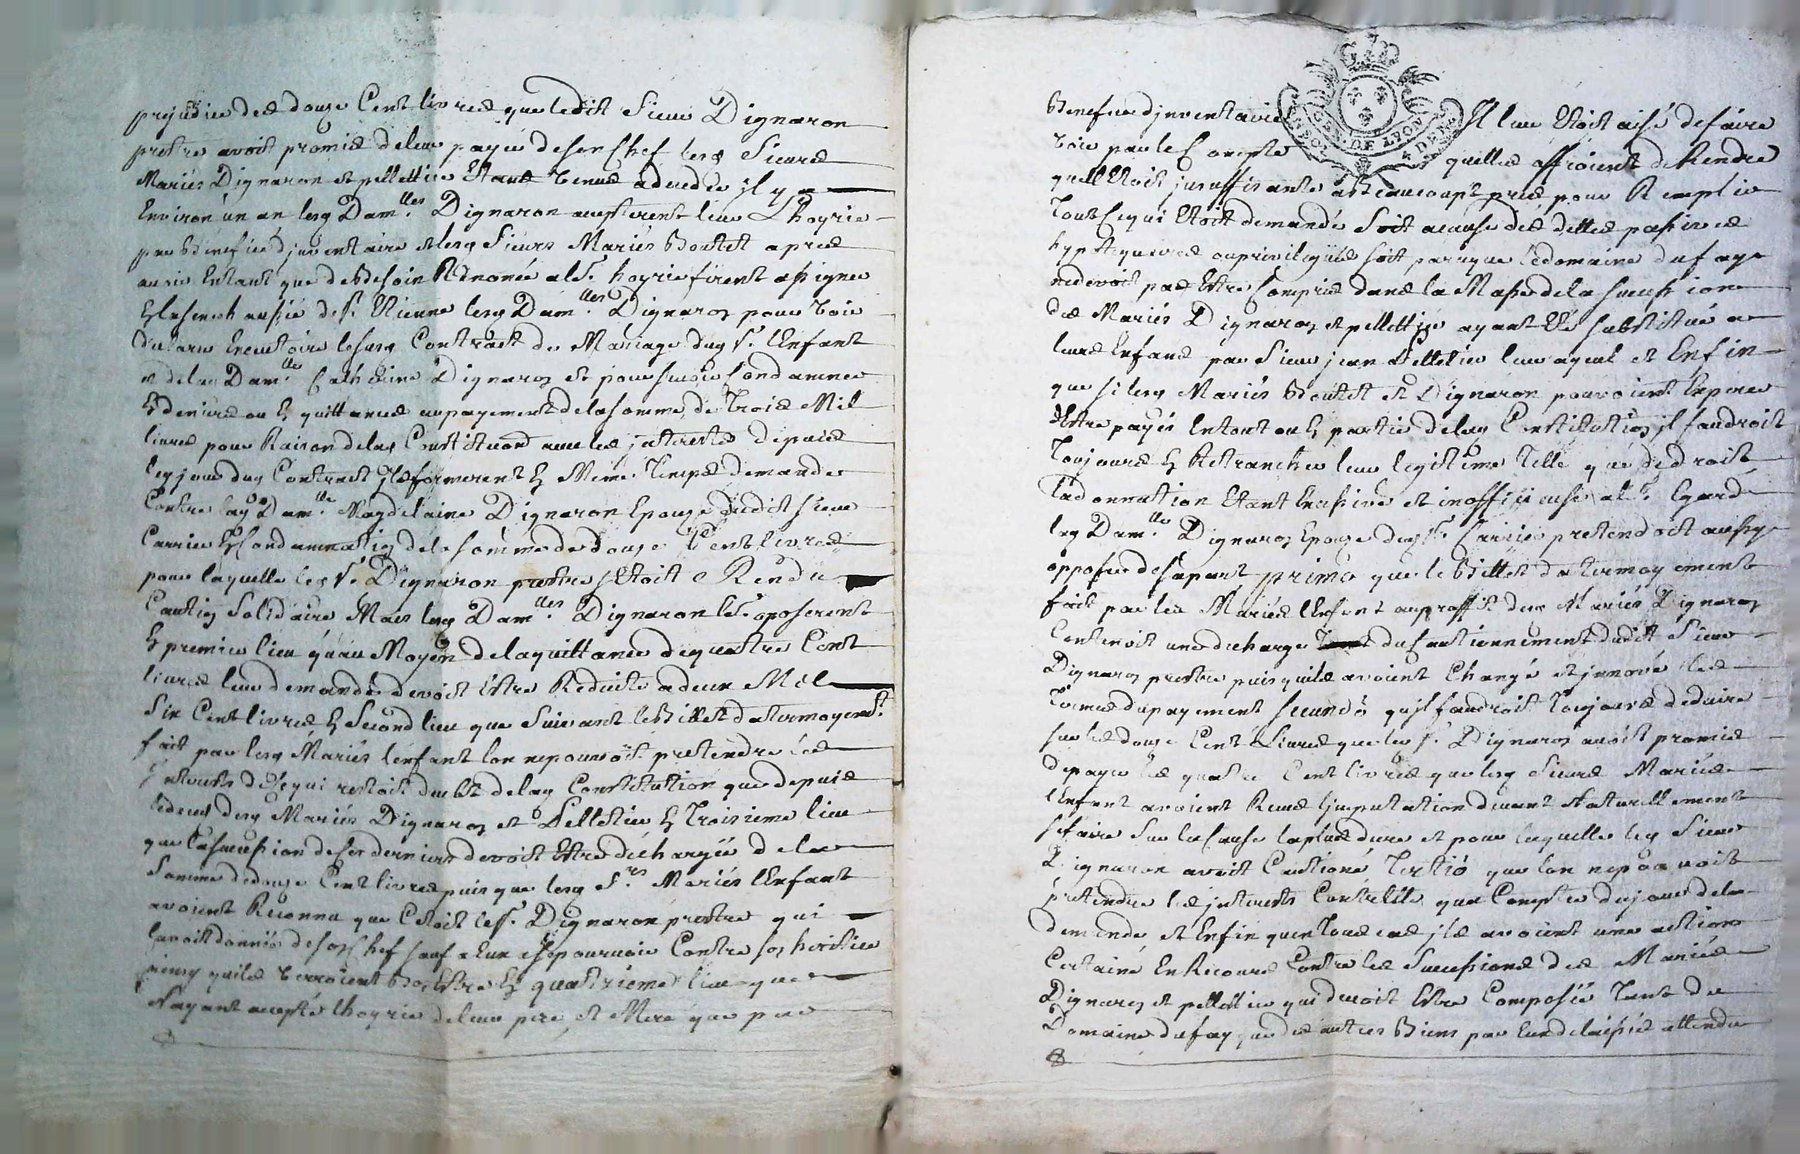 prejudice des douze Cent livres que ledit Sieur Dignaron
prestre avoit promis de leur payer de son Chef lesq Sieurs
Mariés Dignaron et pellettier Etant venus a deceder il y a
Environ un an lesq Dam.lles Dignaron accepterent leur L'hoyrie
par Benefice djnventaire et lesq Sieurs Mariés Boutet apres
avoir Entant que de besoin Renoncé a lad.e hoyrie firent assigner
En la senechaussée de S.t Etienne lesq Dam.lles Dignaron pour voir
declarer Executoire lesusd Contract de Mariage dud S.r l'Enfant
et de lad Dam.lle Catherine Dignaron et pour se voir Condamner
En deniers ou En quittances au payement de la somme de Trois Mil
livres pour Raison de lad Constitution avec les jnterests depuis
led jour dud Contract jls formerent En Meme Temps demande
Contre lad Dam.lle Magdelaine Dignaron Epouze dudit Sieur
Carrier En Condamnation de la somme de douze Cent livres
pour laquelle led S.r Dignaron prestre s'Etoit Rendu
Caution Solidaire Mais lesq Dam.lles Dignaron les oposerent
En premier lieu qu'au Moyen de la quittance de quatre Cent
livres leur demande devoit Etre Reduite a deux Mil
Six Cent livres En Second lieu que Suivant le Billet d'atermoyem.t
fait par lesq Mariés l'enfant l'on ne pouvoit pretendre les
jnterests de ce qui restoit deub de lad Constitution que depuis
le deces desq Mariés Dignaron et Pelletier En Troisieme lieu
que la succession de ces derniers devoit Etre dechargée de la
Somme de douze Cent livres puis que lesq S.rs Mariés l'Enfant
avoient Reconnu que C'etoit led S.r Dignaron prestre qui
l'avoit donnée de son Chef sauf a Eux a se pourvoir Contre son heritier
ainsy qu'ils verroient bon Etre En quatrieme lieu que
N'ayant accepté l'hoyrie de leur pere et Mere que par
Benefice djnventaire Il leur Etoit aisé de faire
voir par le Compte qu'elles offroient de Rendre
qu'Elle Etoit jnsuffisante a beaucoup pres pour Remplir
Tout Ce qui Etoit demandé Soit a cause des dettes passives
hypotequaires ou privilegiées soit parceque le domaine du fay
ne devoit pas Etre Compris dans la Masse de la succession
des Mariés Dignaron et pellettier ayant Eté substitué a
leurs Enfans par Sieur jean Pelletier leur ayeul et Enfin
que si lesq Mariés Boutet et Dignaron pouvoient Esperer
d'Etre payés En tout ou En partie de lad Constitution jl faudroit
Toujours En Retrancher leur legitime Telle que de droit
la donnation Etant Excessive et inofficieuse a cet Egard
lad Dam.lle Dignaron Epouze dud S.r Carrier pretendoit aussy
opposer de sa part primo que le Billet d'atermoyement
fait par les Mariés l'Enfant au proffit des Mariés Dignaron
Contenoit une decharge du Cautionnement dudit Sieur
Dignaron prestre puis qu'ils avoient Changé et jnnové les
Termes du payement secundo qu'jl faudroit Toujours deduire
sur les douze Cent livres que led S.r Dignaron avoit promis
de payer les quatre Cent livres que lesq Sieurs Mariés
l'Enfant avoient Reçus l'jmputation devant Naturellement
se faire Sur la Cause la plus dure et pour laquelle led Sieur
Dignaron avoit Cautioné Tertio que l'on ne pouvoit
pretendre les jnterests Contr'Elle que Compter du jour de la
demande et Enfin qu'en Tous cas jls avoient une action
Certaine En Recours Contre les Successions des Mariés
Dignaron et pelletier qui devoit Etre Composée Tant du
Domaine du fay que des autres Biens par Eux delaissés attendu
GEN. DE LYON